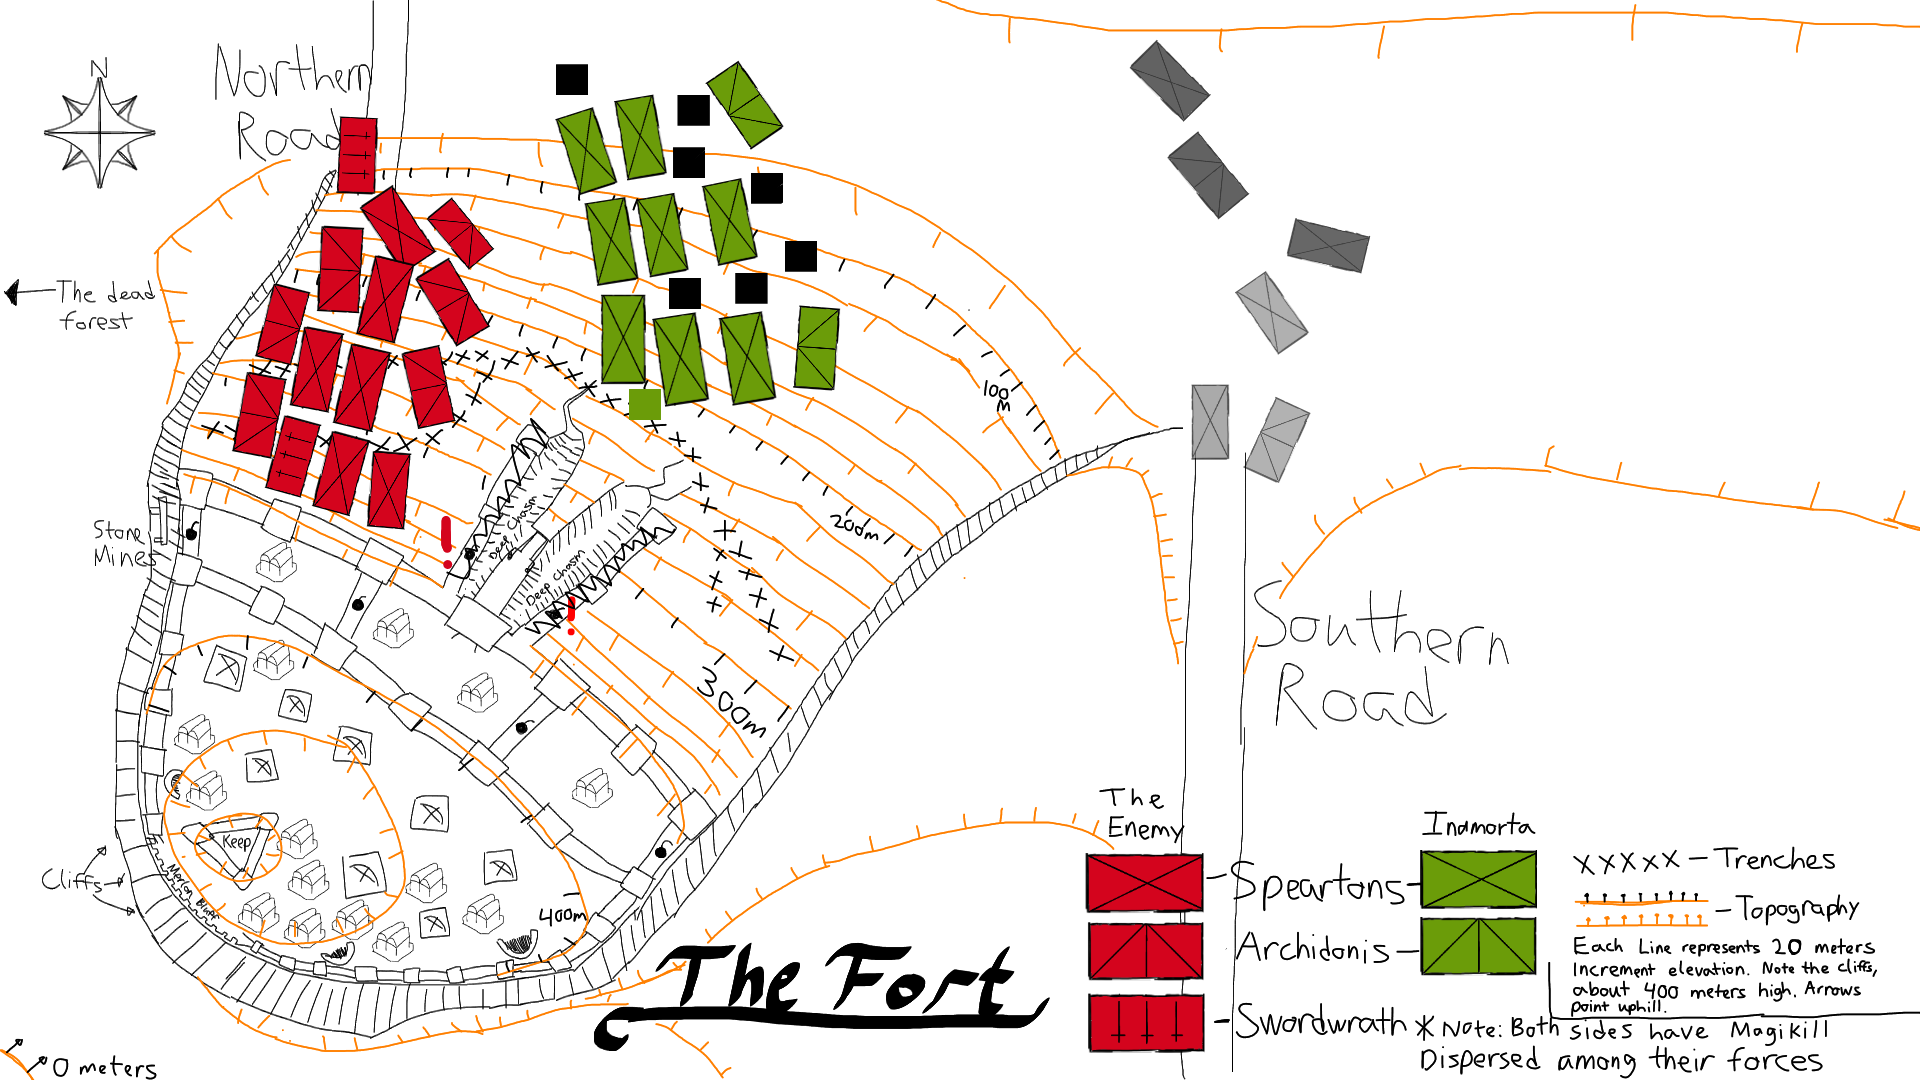 N
Northern
Road
The dead
forest
100
m
200m
300m
400m
Stone
Mines
Deep Chasm
Deep Chasm
Keep
Merlon
Bluff
Cliffs
0 meters
Southern
Road
The Fort
The
Enemy
Inamorta
Speartons
Archidonis
Swordwrath
XXXXX - Trenches
- Topography
Each Line represents 20 meters
Increment elevation. Note the cliffs,
about 400 meters high. Arrows
point uphill.
* Note: Both sides have Magikill
Dispersed among their forces